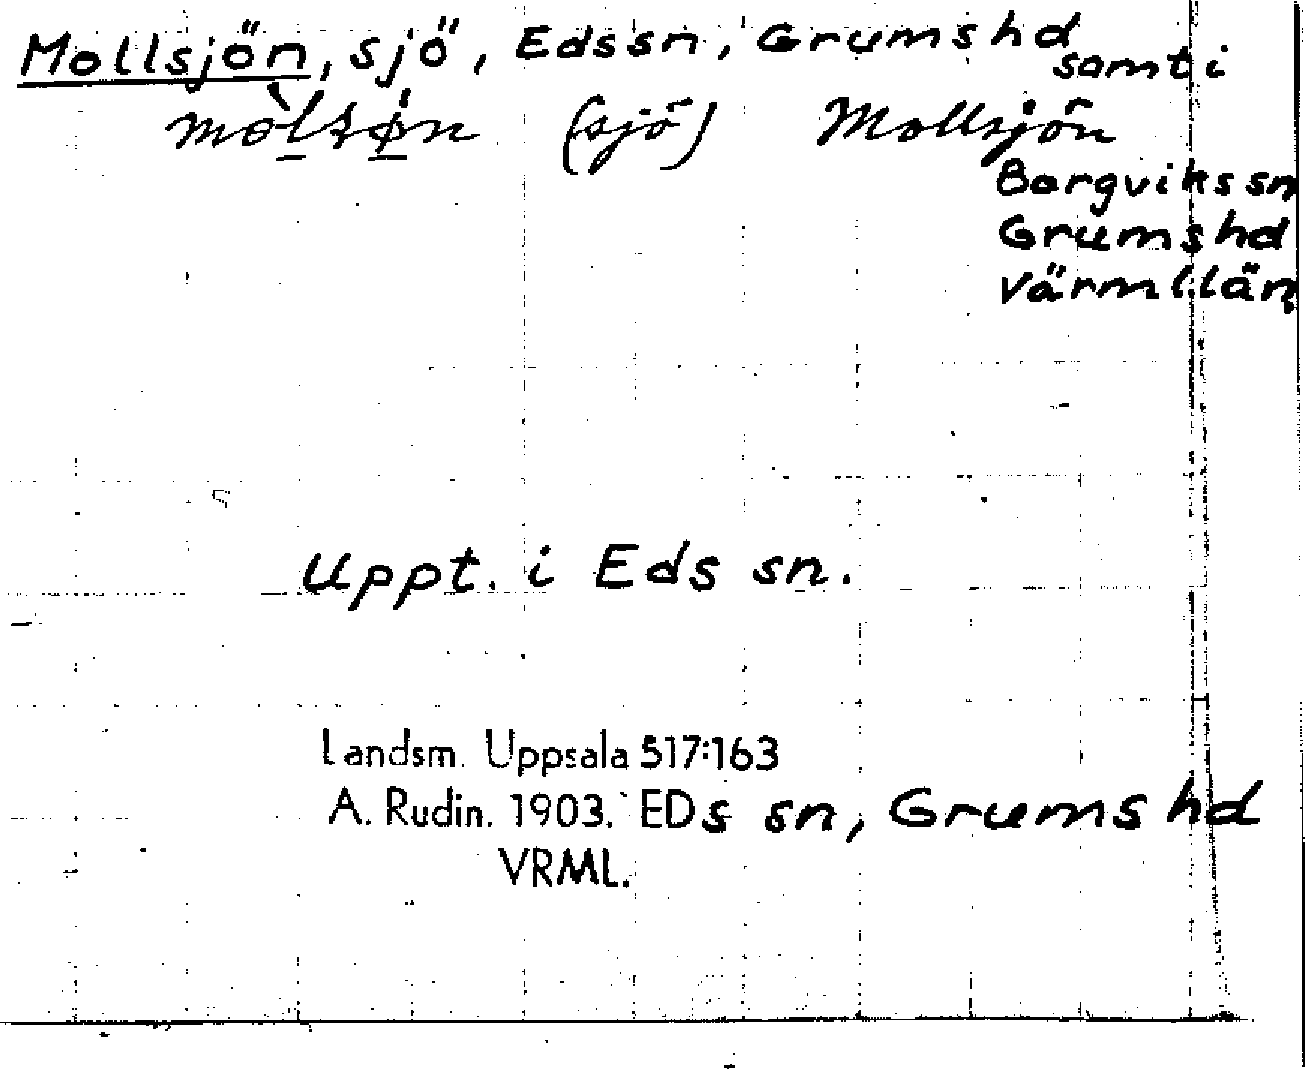 Mollsjön, sjö, Eds sn, Grums hd
samt i
(sjö) Mollsjön
Borgviks sn
Grums hd
Värml. län
Uppt. i Eds sn.
Landsm. Uppsala 517:163
A. Rudin. 1903. EDs sn, Grums hd
VRML.